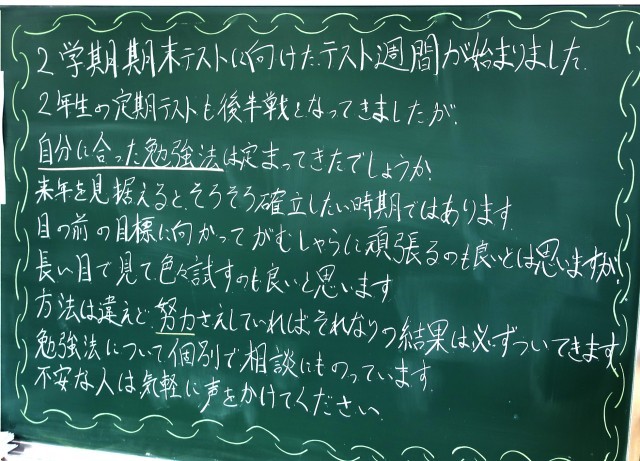 2学期期末テストに向けたテスト週間が始まりました.
2年生の定期テストも後半戦となってきましたが、
自分に合った勉強法は定まってきたでしょうか.
来年を見据えると、そろそろ確立したい時期ではあります.
目の前の目標に向かってがむしゃらに頑張るのも良いとは思いますが、
長い目で見て色々試すのも良いと思います
方法は違えど、努力さえしていれば、それなりの結果は必ずついてきます
勉強法について個別で相談にものっています.
不安な人は気軽に声をかけてください.